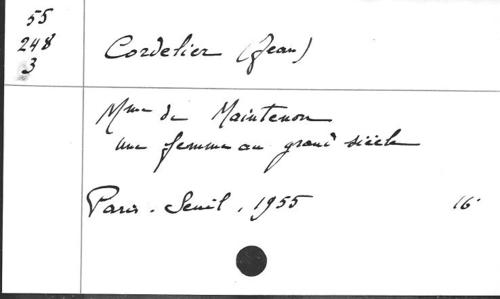 55
248
3
Cordelier (Jean)
Mme de Maintenon
une femme au grand siècle
Paris. Seuil, 1955 16°